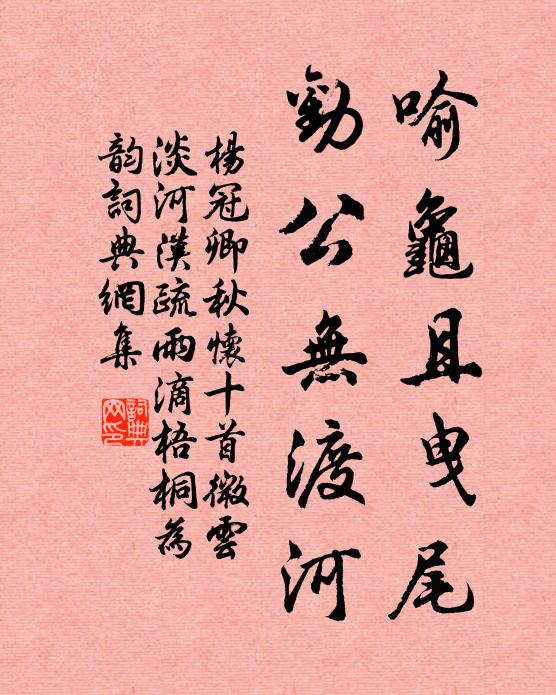 喻龜且曳尾
勸公無渡河
楊冠卿秋懷十首微雲
淡河漢疏雨滴梧桐為
韵詞典網集
詞典
网印